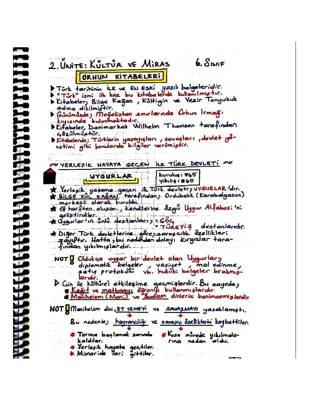 2. ÜNİTE: KÜLTÜR VE MİRAS 6. SINIF
ORHUN KİTABELERİ
Türk tarihinin İLK VE EN ESKİ yazılı belgeleridir.
"Türk" ismi ilk kez bu kitabelerde kullanılmıştır.
Kitabeler; Bilge Kağan, Kültigin ve Vezir Tonyukuk
adına dikilmiştir.
Günümüzde; Moğolistan sınırlarında Orhun Irmağı
kıyısında bulunmaktadır.
Kitabeler, Danimarkalı Wilhelm Thomsen tarafından
çözülmüştür.
Kitabelerde; Türklerin yaşayışları, savaşları, devlet yö-
netimi gibi konularda bilgiler verilmiştir.
~ YERLEŞİK HAYATA GEÇEN İLK TÜRK DEVLETİ ~
UYGURLAR
kuruluş: 745
yıkılış: 840
Yerleşik yaşama geçen ilk Türk devleti; UYGURLAR'dır.
BİLGE KÜL KAĞAN tarafından; Ordubalık (Karabalgasun)
merkezli olarak kuruldu.
harften oluşan, kendilerine özgü Uygur Alfabesi'ni
geliştirdiler.
Uygurlar'ın ünlü destanları; GÖÇ,
TÜREYİŞ destanlarıdır.
Diğer Türk devletlerine göre; savaşçılık özellikleri
zayıftır. Hatta; bu nedenden dolayı Kırgızlar tara-
fından yıkılmışlardır.
NOT! Oldukça uygar bir devlet olan Uygurlar;
diplomatik belgeler, vaziyet, mal edinme,
satış protokolü vb. hukuki belgeler bırakmış-
lardır.
Çin ile kültürel etkileşime geçmişlerdir. Bu sayede;
Kağıt ve matbaayı öğrenip kullanmışlardır.
Maniheizm (Mani) ve Budizm dinlerini benimsemişlerdir.
NOT! Maniheizm dini, ET YEMEYİ ve SAVAŞMAYI yasaklamıştı.
Bu nedenle; hayvancılığı ve savaşçı özelliklerini kaybettiler.
Tarıma başlamak zorunda
kaldılar.
Yerleşik hayata geçtiler.
Mimaride ileri gittiler.
Kısa sürede yıkılmala-
rına neden oldu.